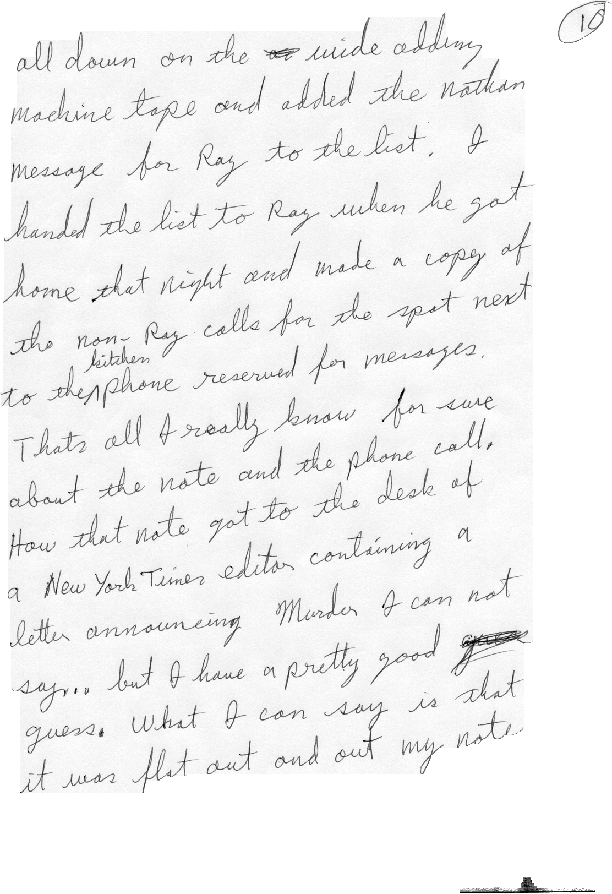 10
all down on the wide adding
machine tape and added the nathan
message for Ray to the list. I
handed the list to Ray when he got
home that night and made a copy of
the non-Ray calls for the spot next
kitchen
to the phone reserved for messages.
Thats all I really know for sure
about the note and the phone call.
How that note got to the desk of
a New York Times editor containing a
letter announcing Murder I can not
say... but I have a pretty good
guess. What I can say is that
it was flat out and out my note